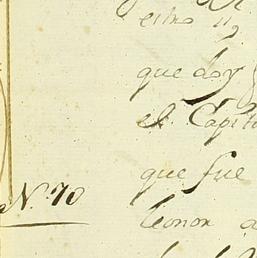 que doy
el Capit
que fue
N. 70
Leonor a